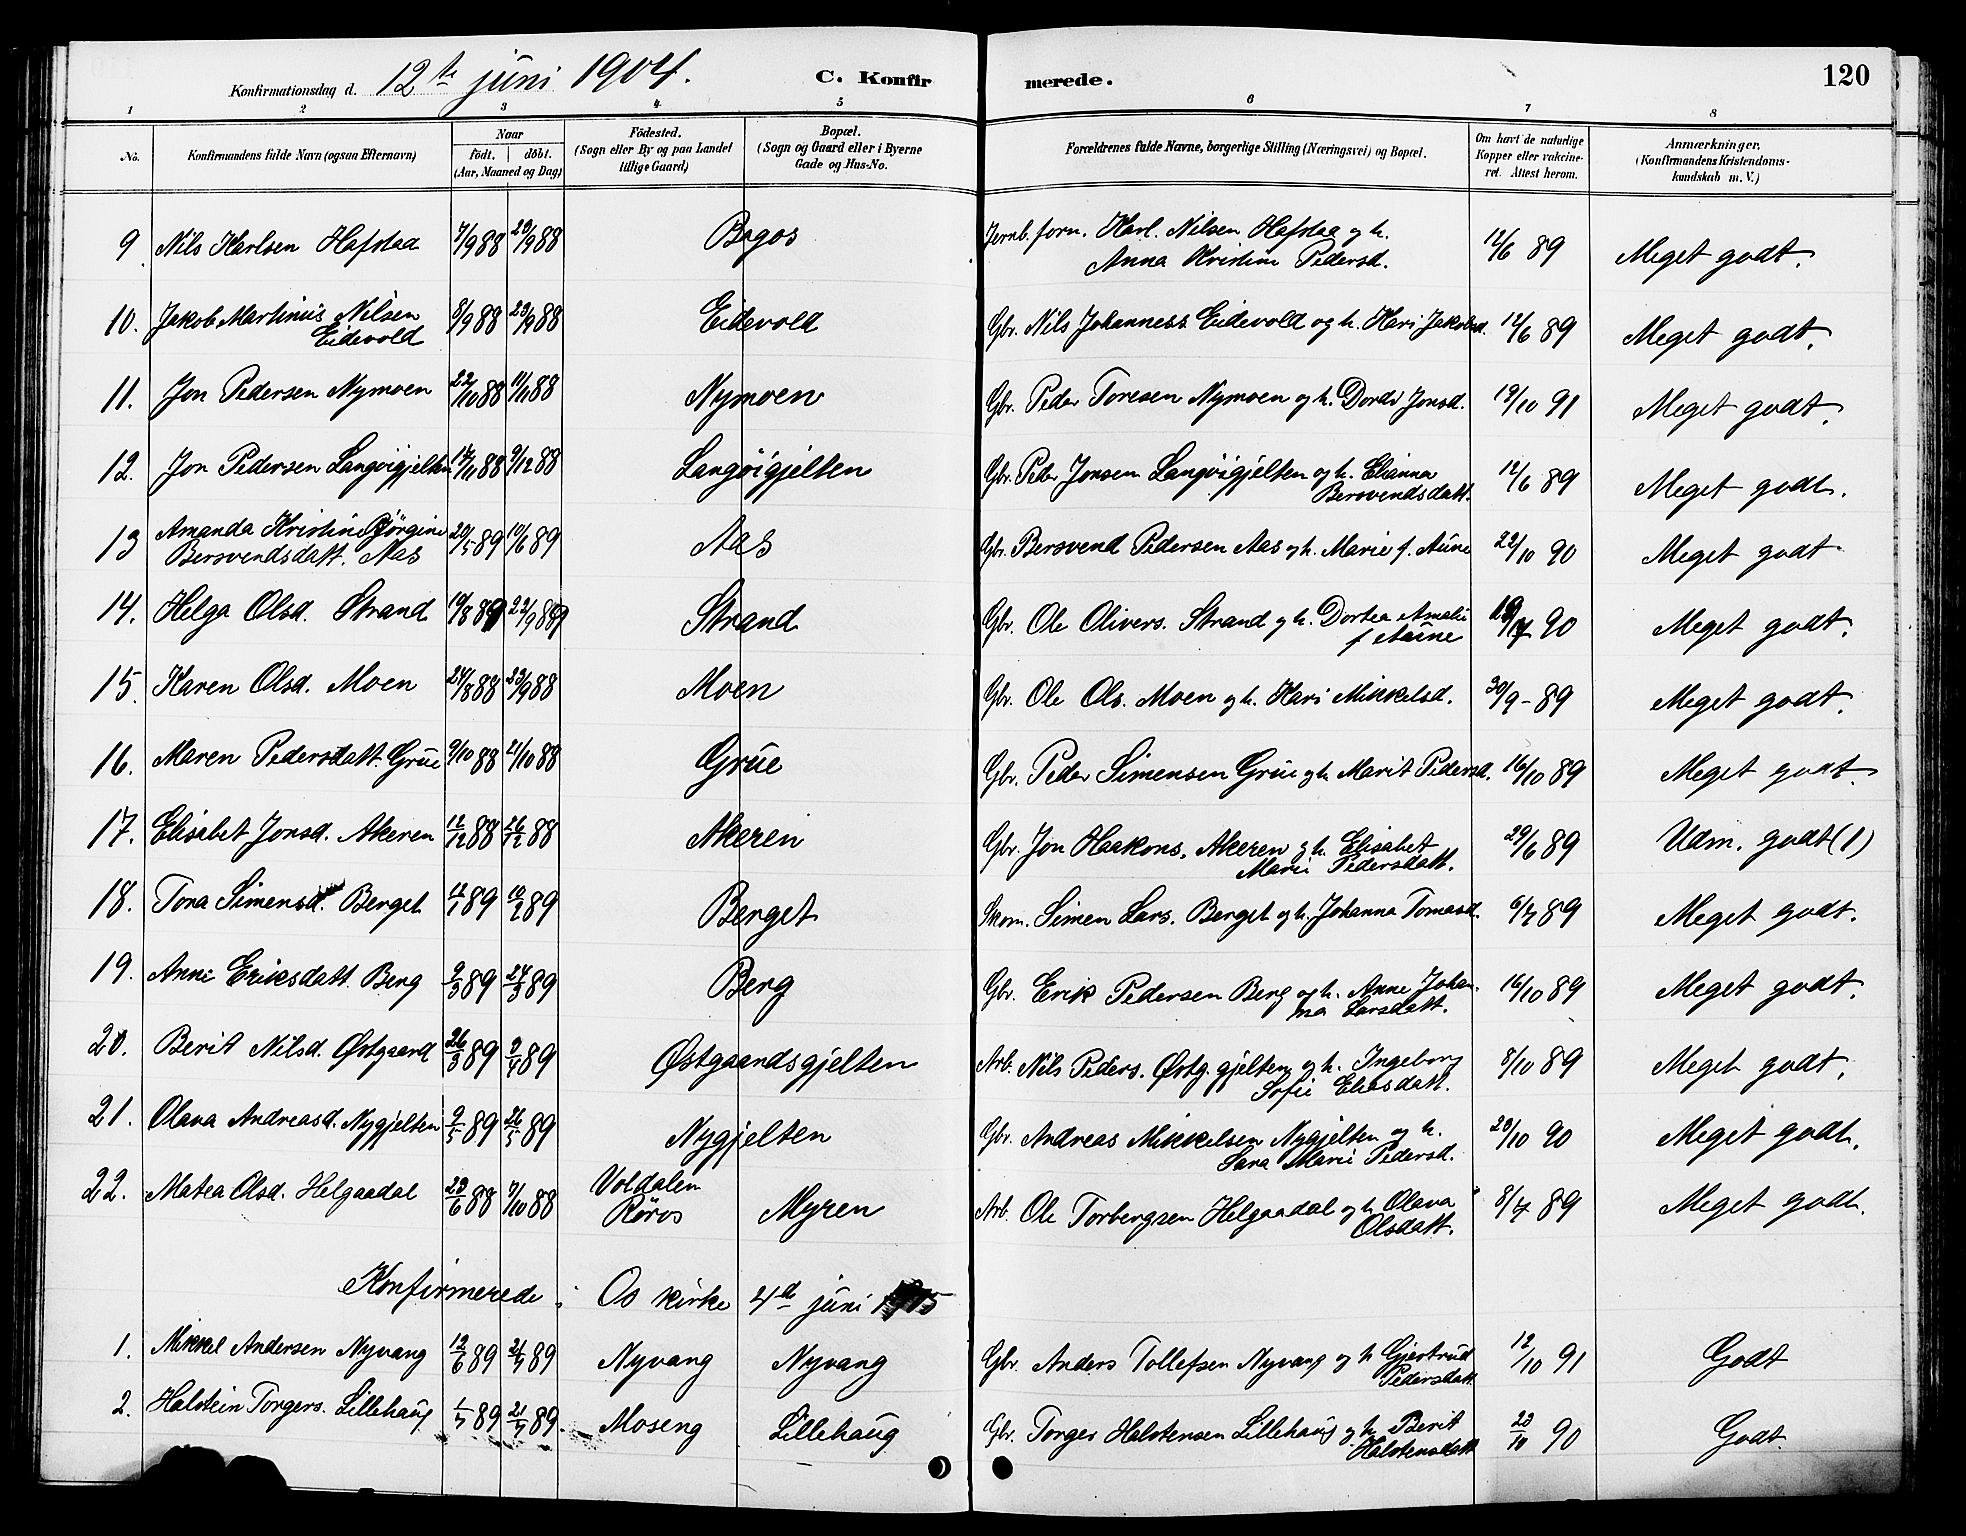 Konfirmationsdag d. 12te juni 1904. C. Konfirmerede. 120
1 2 3 4 5 6 7 8
No. Konfirmandens fulde Navn (ogsaa Efternavn) Naar födt. döbt. (Aar, Maaned og Dag) Födested. (Sogn eller By og paa Landet tillige Gaard) Bopæl. (Sogn og Gaard eller i Byerne Gade og Hus-No. Forældrenes fulde Navne, borgerlige Stilling (Næringsvei) og Bopæl. Om havt de naturlige Kopper eller vakcineret. Attest herom. Anmærkninger. (Konfirmandens Kristendomskundskab m. V.)
9 Nils Karlsen Hafstad 7/9 88 23/9 88 Bogos Jernb.forn. Karl. Nilsen Hafstaa og h. 12/6 89 Meget godt.
Anna Kristine Pedersd.
10. Jakob Martinus Nilsen 8/9 88 23/9 88 Eidevold Gbr. Nils Johanness. Eidevold og h. Kari Jakobsd. 12/6 89 Meget godt.
Eidevold
11. Jon Pedersen Nymoen 22/10 88 11/11 88 Nymoen Gbr. Peder Toresen Nymoen og h. Dordi Jonsd. 19/10 91 Meget godt.
12. Jon Pedersen Langvigjelten 14/11 88 9/12 88 Langvigjelten Gbr. Peder Jonsen Langvigjelten og h. Elianna 12/6 89 Meget godt.
Bersvendsdatt.
13 Amanda Kristine Jörgine 20/5 89 10/6 89 Aas Gbr. Bersvend Pedersen Aas og h. Marie f. Aune 22/10 90 Meget godt
Bersvendsdatt. Aas
14. Helga Olsd. Strand 10/8 89 22/9 89 Strand Gbr. Ole Olivers. Strand og h. Dortea Amalie 90 Meget godt.
f Aune
15. Karen Olsd. Moen 24/8 88 23/9 88 Moen Gbr. Ole Ols. Moen og h. Kari Mikkelsd. 30/9 - 89 Meget godt.
16. Maren Pedersdatt. Grue 9/10 88 21/10 88 Grue Gbr. Peder Simensen Grue og h. Marit Pedersd. 16/10 89 Meget godt.
17. Elisabet Jonsd. Akeren 12/12 88 26/12 88 Akeren Gbr. Jon Haakons. Akeren og h. Elisabet 29/6 89 Udm. godt (1)
Marie Pedersdatt.
18. Tora Simensd. Berget 11/1 89 10/2 89 Berget Skom. Simen Lars. Berget og h. Johanna Tomasd. 6/7 89 Meget godt.
19. Anne Eriksdatt. Berg 2/3 89 24/3 89 Berg Gbr. Erik Pedersen Berg og h. Anne Johan- 16/10 89 Meget godt.
na Larsdatt.
20. Berit Nilsd. Østgaard 26/3 89 89 Østgaardsgjelten Arb. Nils Peders. Østg.gjelten og h. Ingeborg 8/10 89 Meget godt.
Sofie Eliasdatt.
21. Olava Andreasd. Nygjelten 9/5 89 26/5 89 Nygjelten Gbr. Andreas Mikkelsen Nygjelten og h. 23/10 90 Meget godt.
Sara Marie Pedersd.
22. Matea Olsd. Helgaadal 23/6 88 7/10 88 Voldalen Röros Myren Arb. Ole Torbergsen Helgaadal og h Olava 8/7 89 Meget godt.
Olsdatt.
Konfirmerede i Os kirke 4d juni 1905
1. Mikkel Andersen Nyvang 12/6 89 21/7 89 Nyvang Nyvang Gbr. Anders Tollefsen Nyvang og h Gjertrud 12/10 91 Godt
Pedersdatt.
2. Halstein Torgers. Lillehaug 1/7 89 21/7 89 Moseng Lillehaug Gbr. Torger Halstensen Lillehaug og h. Berit 23/10 90 Godt.
Halstensdatt